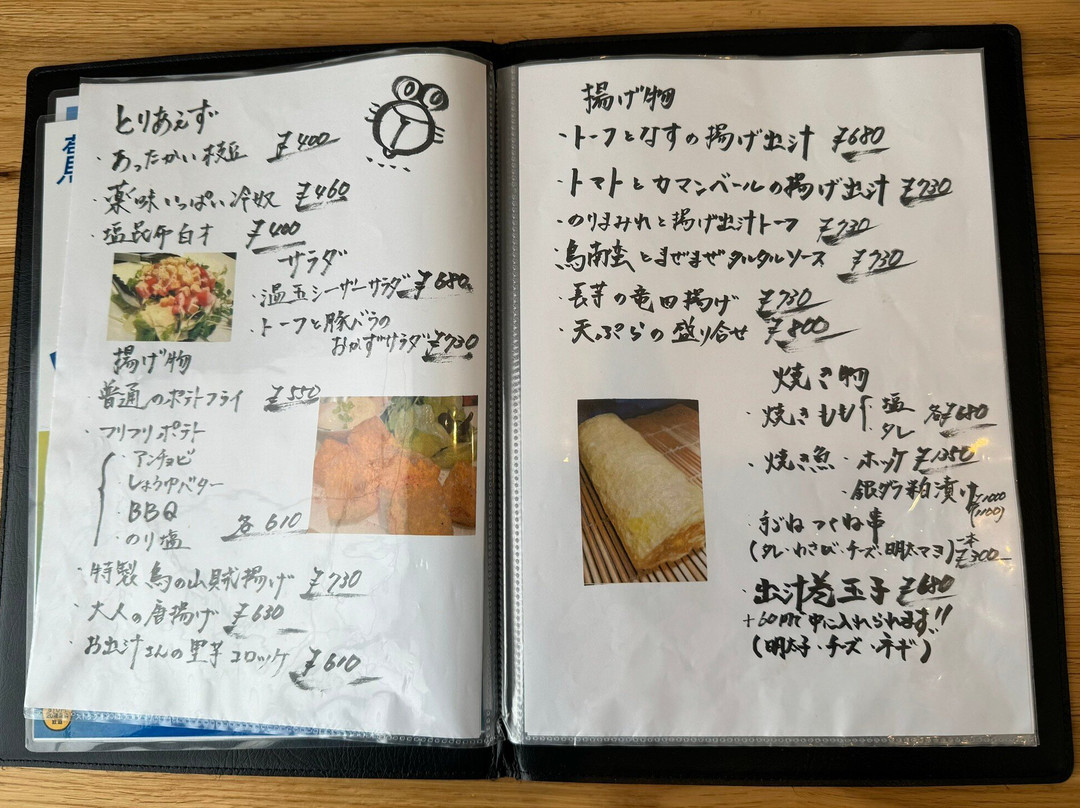 とりあえず
・あったかい枝豆 ¥400
・薬味いっぱい冷奴 ¥460
・塩昆布白才 ¥400
サラダ
・温玉シーザーサラダ ¥680
・トーフと豚バラの
おかずサラダ ¥730
揚げ物
・普通のポテトフライ ¥550
・フリフリポテト
・アンチョビ
・しょうゆバター
・BBQ
・のり塩 各610
・特製 鳥の山賊揚げ ¥730
・大人の唐揚げ ¥630
・お出汁さんの里芋コロッケ ¥610
揚げ物
・トーフとなすの揚げ出汁 ¥680
・トマトとカマンベールの揚げ出汁 ¥730
・のりまみれと揚げ出汁トーフ ¥730
・鳥南蛮とまぜまぜタルタルソース ¥730
・長芋の竜田揚げ ¥730
・天ぷらの盛り合せ ¥800
焼き物
・焼きもも ・塩 ・タレ 各¥680
・焼き魚・ホッケ ¥1350
・銀ダラ粕漬け ¥1000 (1100)
・手ごねつくね串
(タレ・わさび・チーズ・明太マヨ) 一本 ¥300
・出汁巻玉子 ¥680
+60円で中に入れられます!!
(明太子・チーズ・ネギ)